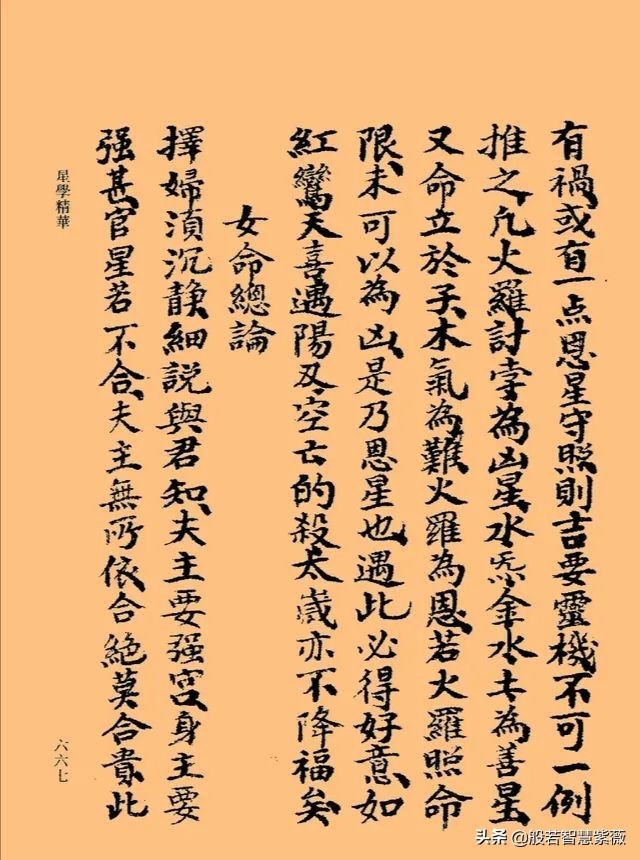 有禍或有一点恩星守照則吉要靈機不可一例
推之凡火羅計孛為凶星水炁金水土為善星
又命立於子木氣為難火羅為恩若火羅照命
限未可以為凶是乃恩星也遇此必得好意如
紅鸞天喜遇陽刄空亡的殺太歲亦不降福矣
女命總論
擇婦湏沉静細説與君知夫主要强宫身主要
强甚官星若不合夫主無所依合絕莫合貴此
星學精華
六六七
头条 @般若智慧紫薇